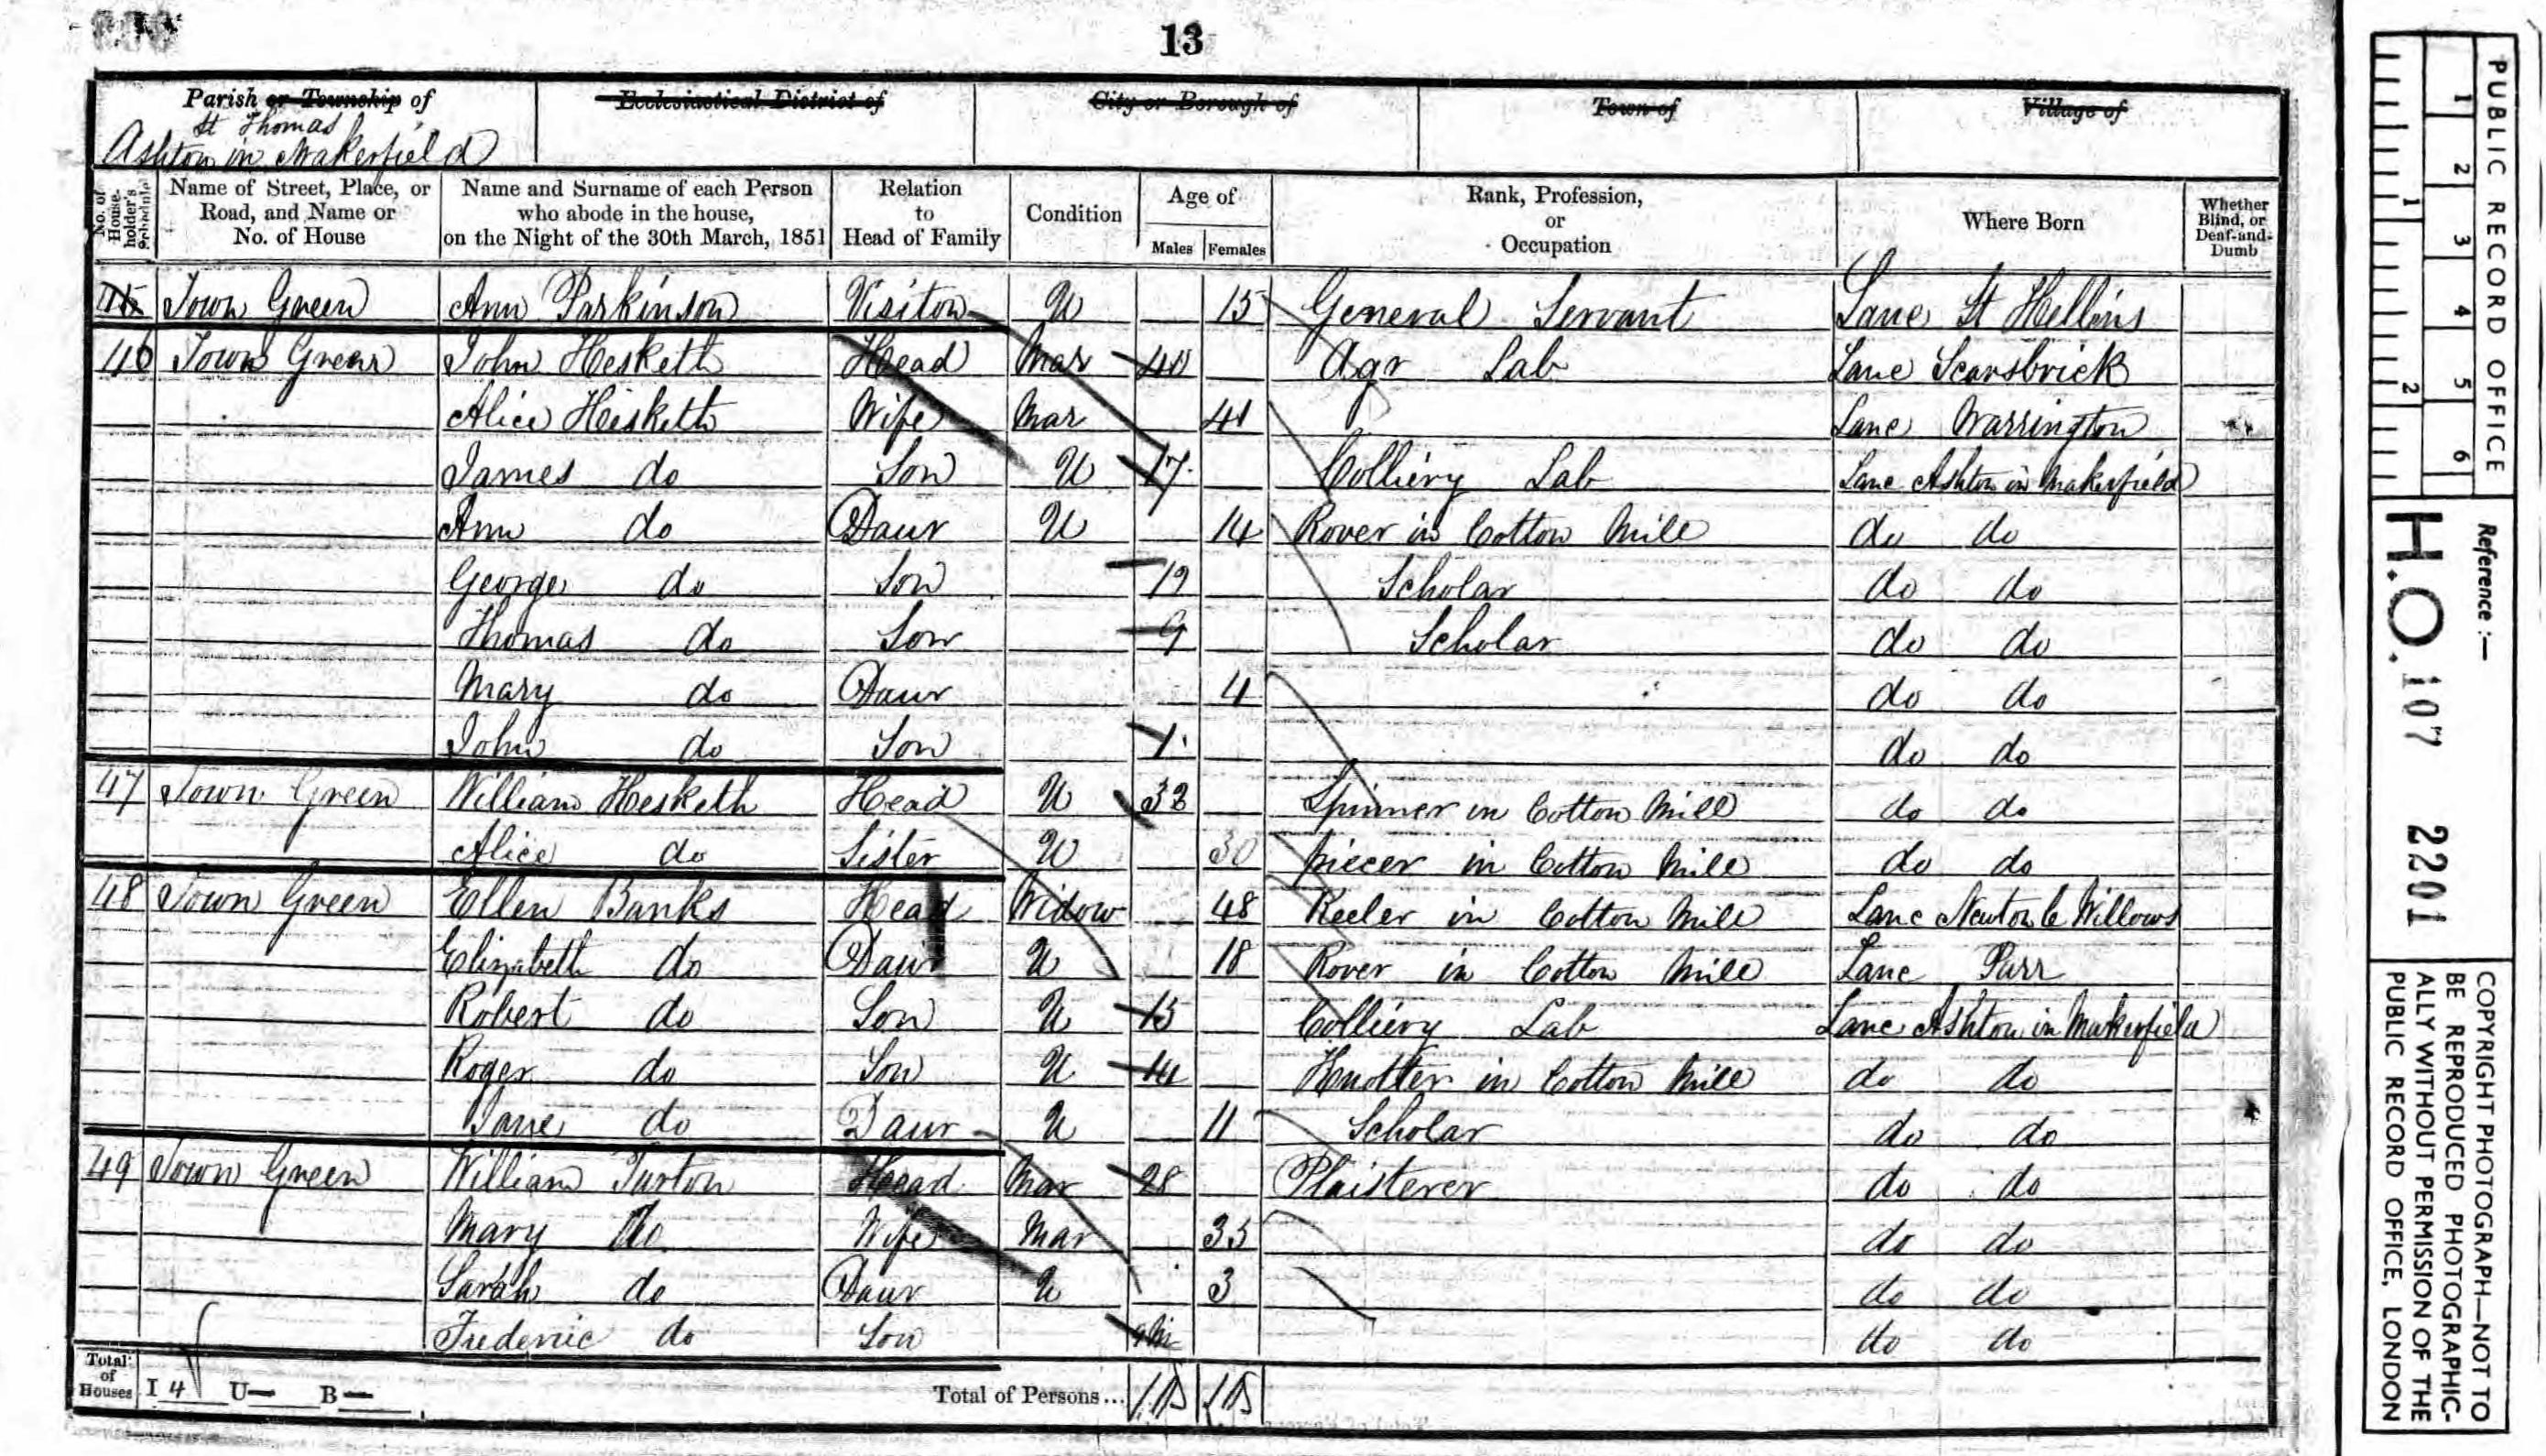 13
Parish or Township of
St Thomas
Ashton in Makerfield
Ecclesiastical District of
City or Borough of
Town of
Village of
No. of House-holder's Schedule
Name of Street, Place, or Road, and Name or No. of House
Name and Surname of each Person who abode in the house, on the Night of the 30th March, 1851
Relation to Head of Family
Condition
Age of
Males
Females
Rank, Profession, or Occupation
Where Born
Whether Blind, or Deaf-and-Dumb
Town Green Ann Parkinson Visitor U 15 General Servant Lanc St Hellins
46 Town Green John Hesketh Head Mar 40 Agr Lab Lanc Scarsbrick
Alice Hesketh Wife Mar 41 Lanc Warrington
James do Son U 17 Colliery Lab Lanc Ashton in Makerfield
Ann do Daur U 14 Rover in Cotton Mill do do
George do Son Scholar do do
Thomas do Son 9 Scholar do do
Mary do Daur 4 do do
John do Son 1 do do
47 Town Green William Hesketh Head U Spinner in Cotton Mill do do
Alice do Sister U 30 piecer in Cotton Mill do do
48 Town Green Ellen Banks Head Widow 48 Reeler in Cotton Mill Lanc Newton Willows
Elizabeth do Daur U 18 Rover in Cotton Mill Lanc Parr
Robert do Son U 15 Colliery Lab Lanc Ashton in Makerfield
Roger do Son U 14 Knotter in Cotton Mill do do
Jane do Daur U 11 Scholar do do
49 Town Green William Turton Head Mar 28 Plaisterer do do
Mary Do Wife Mar 35 do do
Sarah do Daur U 3 do do
Frederic do Son do do
Total of Houses I 4 U— B—
Total of Persons...
PUBLIC RECORD OFFICE
1 2 3 4 5 6
1 2
Reference:—
H.O. 107 2201
COPYRIGHT PHOTOGRAPH—NOT TO BE REPRODUCED PHOTOGRAPHICALLY WITHOUT PERMISSION OF THE PUBLIC RECORD OFFICE, LONDON